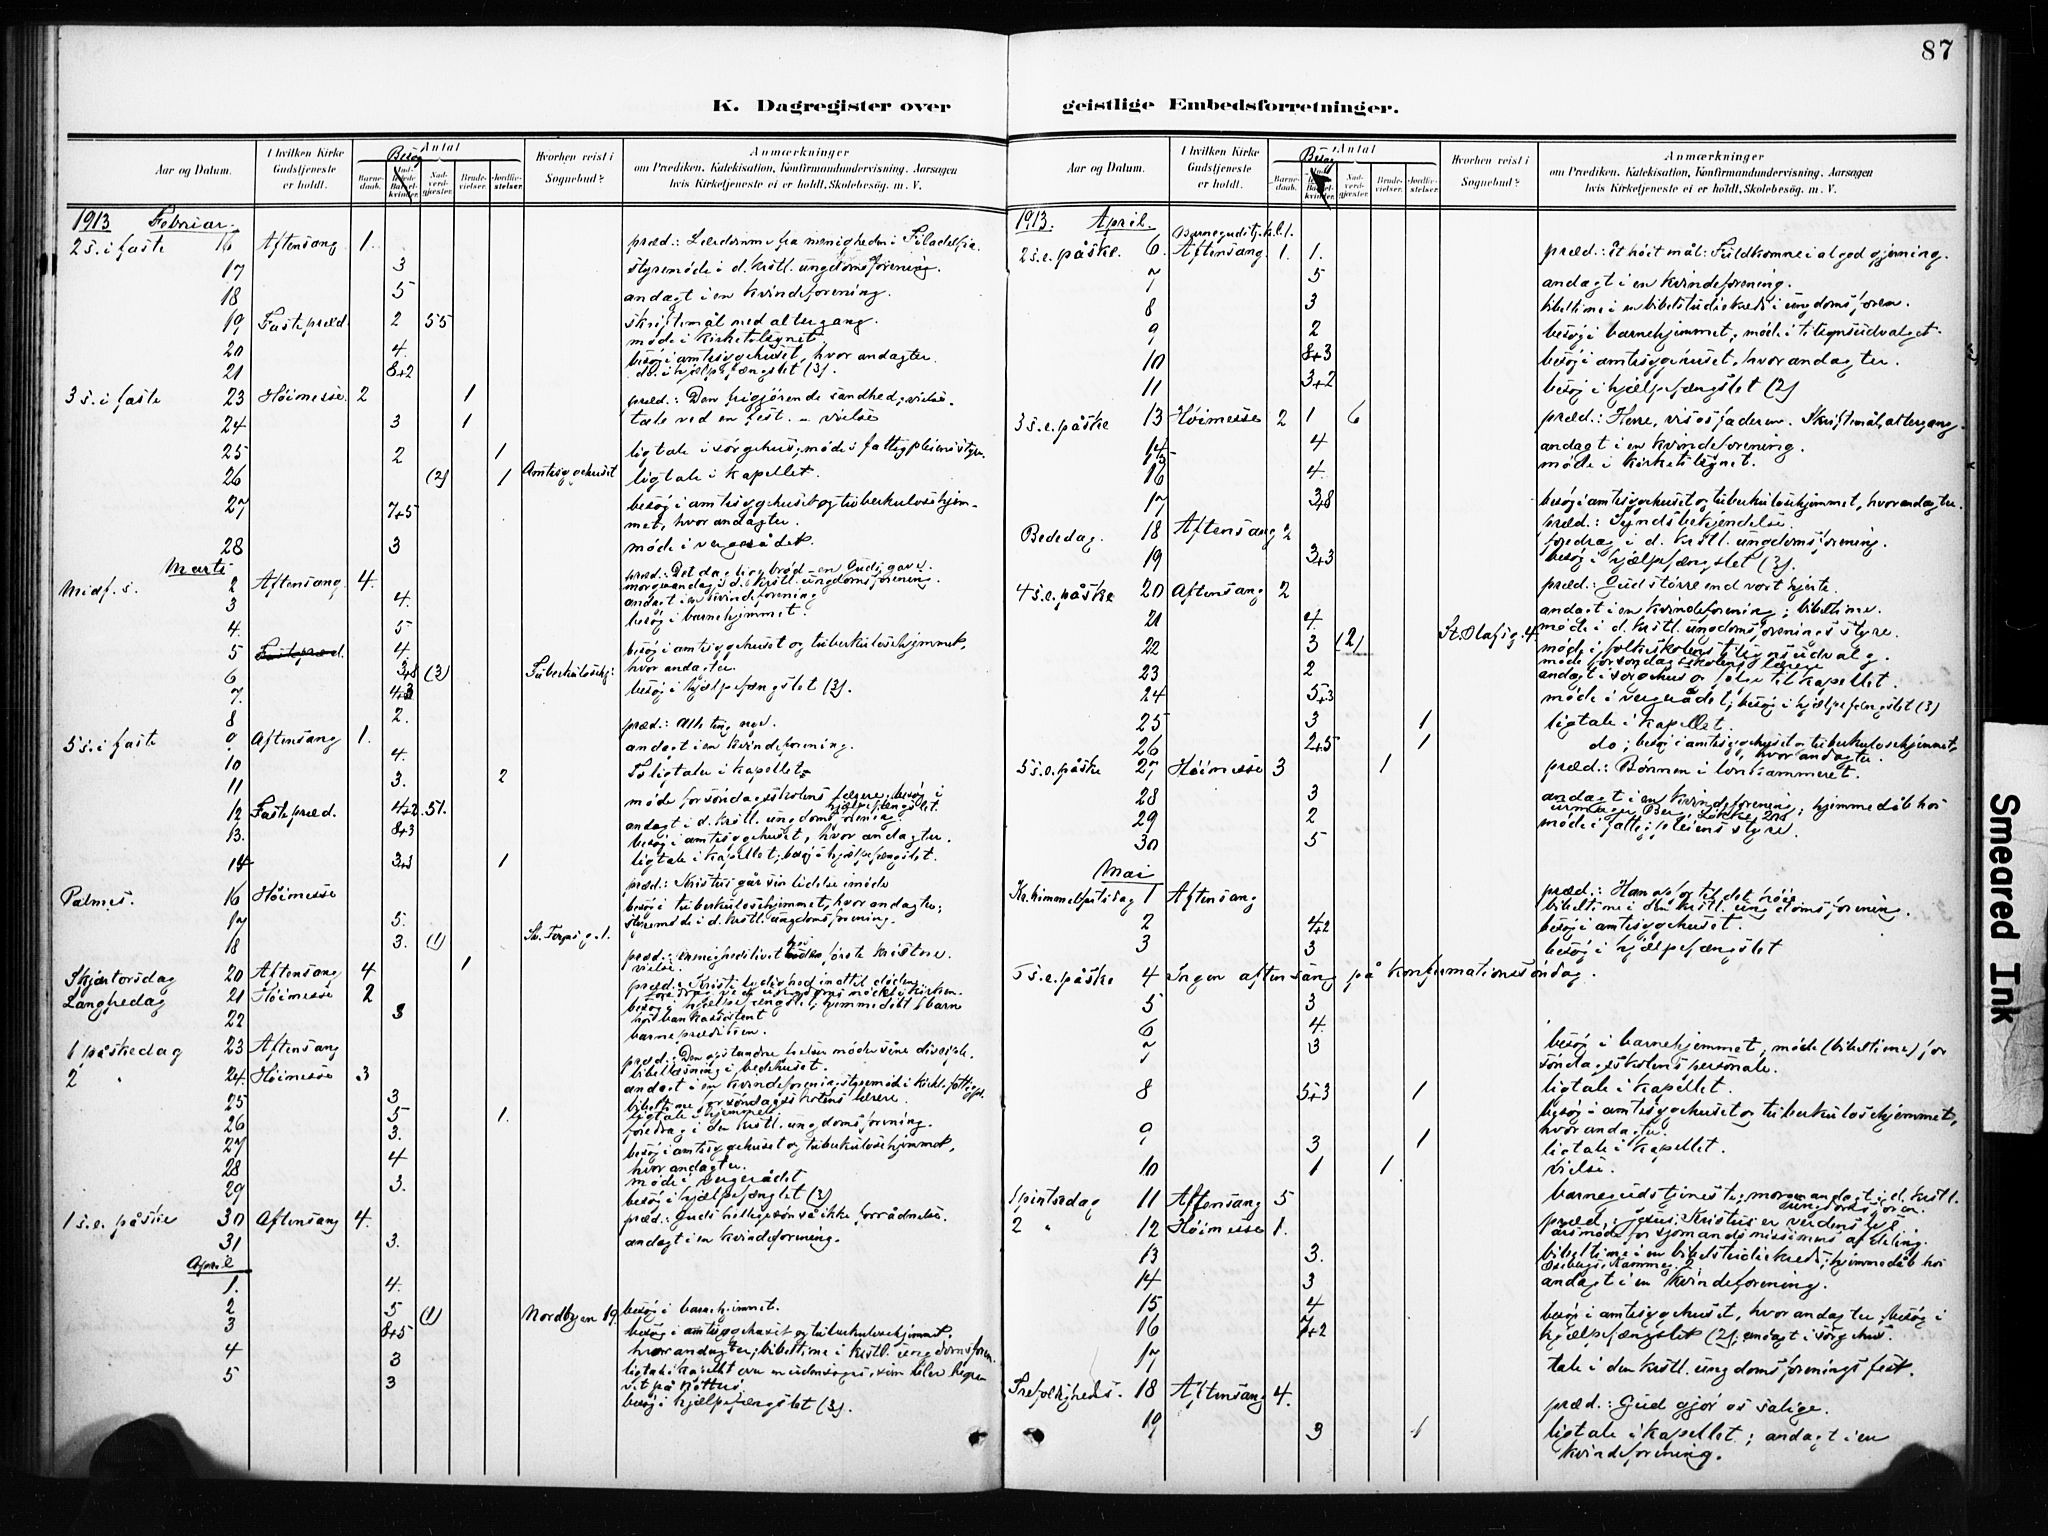 87
K. Dagregister over geistlige Embedsforretninger.
Aar og Datum.
I hvilken Kirke Gudstjeneste er holdt.
Antal
Besøg
Barnedaab.
Indledede Barselkvinder.
Nadverdgjester.
Brudevielser.
Jordfæstelser.
Hvorhen reist i Sognebud?
Anmærkninger
om Prædiken, Katekisation, Konfirmandundervisning. Aarsagen
hvis Kirketjeneste ei er holdt, Skolebesøg. m. V.
1913 Februar.
2 s. i faste 16 Aftensang 1. præd.: Lærdomme fra menigheden i Filadelfia.
17 3 styremøde i d. kristl. ungdomsforening.
18 5 andagt i en kvindeforening.
19 Fastepræd. 2 55 skriftemål med altergang.
møde i kirketilsynet.
20 4. besøg i amtssygehuset, hvor andagter.
21 8+2 do. i hjælpefængslet (3).
3 s. i faste 23 Høimesse 2 1 præd.: Den frigjørende sandhed; vielse.
24 3 1 tale ved en fest. – vielse
25 2 1 ligtale i sørgehus; møde i fattigpleiens styre.
26 (2) 1 Amtssygehuset ligtale i kapellet.
27 7+5 besøg i amtssygehuset og tuberkulosehjem-
met, hvor andagter.
28 3 møde i vergerådet.
Marts
Midf. s. 2 Aftensang 4. præd.: Det daglige brød – en Guds gave.
morgenandagt i d. kristl. ungdomsforening.
3 4. andagt i en kvindeforening
4. 5 besøg i barnehjemmet.
5 Fastepræd. 4. besøg i amtssygehuset og tuberkulosehjemmet,
6 3+8 (3) Tuberkulosehj: hvor andagter.
7. 4+3 besøg i hjælpefængslet (3).
8 2.
5 s. i faste 9 Aftensang 1. præd.: Alle ting nye.
10 4. andagt i en kvindeforening.
11 3. 2 To ligtaler i kapellet
12 Fastepræd. 4+2 51. møde for søndagsskolens lærere; besøg i
hjælpefængslet.
13. 8+3 andagt i d. kristl. ungdomsforening
besøg i amtssygehuset, hvor andagter.
14 3+3 1 ligtale i kapellet; besøg i hjælpefængslet.
Palmes. 16 Høimesse præd.: Kristus går sin lidelse imøde
17 5. besøg i tuberkulosehjemmet, hvor andagter;
styremøde i d. kristl. ungdomsforening.
18 3. (1) St. Torps g. 1.
Skjærtorsdag 20 Aftensang 4 1 vielse.
Langfredag 21 Høimesse 2 præd.: Kristi lydighed indtil døden.
22 3 besøg i hjælpefængslet; hjemmedøbt 1 barn
1 påskedag 23 Aftensang barneprædiken.
2 " 24. Høimesse 3 præd.: Den opstandne frelser møder sine disciple.
bibellæsning i bedehuset.
25 3 bibeltime for søndagsskolens lærere.
26 5 1. ligtale i hjemmet
27 3. foredrag i den kristl. ungdomsforening.
28 4 besøg i amtssygehuset og tuberkulosehjemmet,
hvor andagter.
29 3. møde i vergerådet
besøg i hjælpefængslet (3)
1 s. e. påske 30 Aftensang 4. præd.: Guds hellige søn så ikke forrådnelse.
31 3. andagt i en kvindeforening.
April
1. 4.
2 5 (1) Nordbyen 19. besøg i barnehjemmet.
3 8+5 besøg i amtssygehuset og tuberkulosehjemmet,
hvor andagter; bibeltime i kristl. ungdomsforen.
4 3
5 3
besøg i hjælpefængslet (3).
Aar og Datum.
I hvilken Kirke Gudstjeneste er holdt.
Antal
Besøg
Barnedaab.
Indledede Barselkvinder.
Nadverdgjester.
Brudevielser.
Jordfæstelser.
Hvorhen reist i Sognebud?
Anmærkninger
om Prædiken, Katekisation, Konfirmandundervisning. Aarsagen
hvis Kirketjeneste ei er holdt, Skolebesøg. m. V.
1913. April.
Barnegudstj. kl. 1.
2 s. e. påske. 6. Aftensang. 1. 1. præd.: Et høit mål: Fuldkomne i al god gjerning.
7 5 andagt i en kvindeforening.
8 3 bibeltime i en bibelstudiekreds i ungdomsforen.
9 2 besøg i barnehjemmet; møde i tilsynsudvalget.
10 8+3 besøg i amtssygehuset, hvor andagter.
11 3+2 besøg i hjælpefængslet (2)
3 s. e. påske 13 Høimesse 2 1 6 præd.: Herre, vis os faderen. Skriftemål, altergang.
14 4 andagt i en kvindeforening.
15 møde i kirketilsynet.
16 4.
17 3+8 besøg i amtssygehuset og tuberkulosehjemmet, hvor andagter.
Bededag. 18 Aftensang 2 præd.: Syndsbekjendelse.
foredrag i d. kristl. ungdomsforening.
19 3+3 besøg i hjælpefængslet (3).
4 s. e. påske 20 Aftensang 2 præd.: Gud større end vort hjerte.
21 4. andagt i en kvindeforening; bibeltime.
22 3 (2) St. Olafsg. 4. møde i d. kristl. ungdomsforenings styre.
møde i folkeskolens tilsynsudvalg.
23 2 møde for søndagsskolens lærere
24 5+3 møde i vergerådet; besøg i hjælpefængslet (3)
25 3 1 ligtale i kapellet.
26 2+5 1 do; besøg i amtssygehuset og tuberkulosehjemmet,
hvor andagter.
5 s. e. påske 27 Høimesse 3 1 præd.: Bønnen i lønkammeret.
28 3 andagt i en kvindeforening; hjemmedåb hos
29 2
30 5 møde i fattigpleiens styre.
Mai
Kr. himmelfartsdag 1 Aftensang
bibeltime i den kristl. ungdomsforening.
2 4+2 besøg i amtssygehuset.
3 3 besøg i hjælpefængslet
s. e. påske 4 Ingen aftensang på konfirmationssøndag.
5 3
6 4.
7 3 besøg i barnehjemmet, møde (bibeltime) for
søndagsskolens personale.
8 5+3 1 ligtale i kapellet.
besøg i amtssygehuset og tuberkulosehjemmet,
hvor andagter.
9 3 1 ligtale i kapellet.
10 1 1 vielse.
1 pintsedag 11 Aftensang 5 barnegudstjeneste; morgenandagt i d. kristl.
ungdomsforen.
2 " 12 Høimesse 1. præd.: Jesus Kristus er verdens lys.
årsmøde for sjømandsmissionens afdeling.
13 3. bibeltime i en bibelstudiekreds; hjemmedåb hos
14 3 andagt i en kvindeforening.
15 4 besøg i amtssygehuset, hvor andagter, besøg i
16 7+2 hjælpefængslet (2); andagt i sørgehus.
17 tale i den kristl. ungdomsforenings fest.
Trefoldigheds. 18 Aftensang 4. præd.: Gud gjør os salige.
19 3 1 ligtale i kapellet; andagt i en
kvindeforening.
Smeared Ink